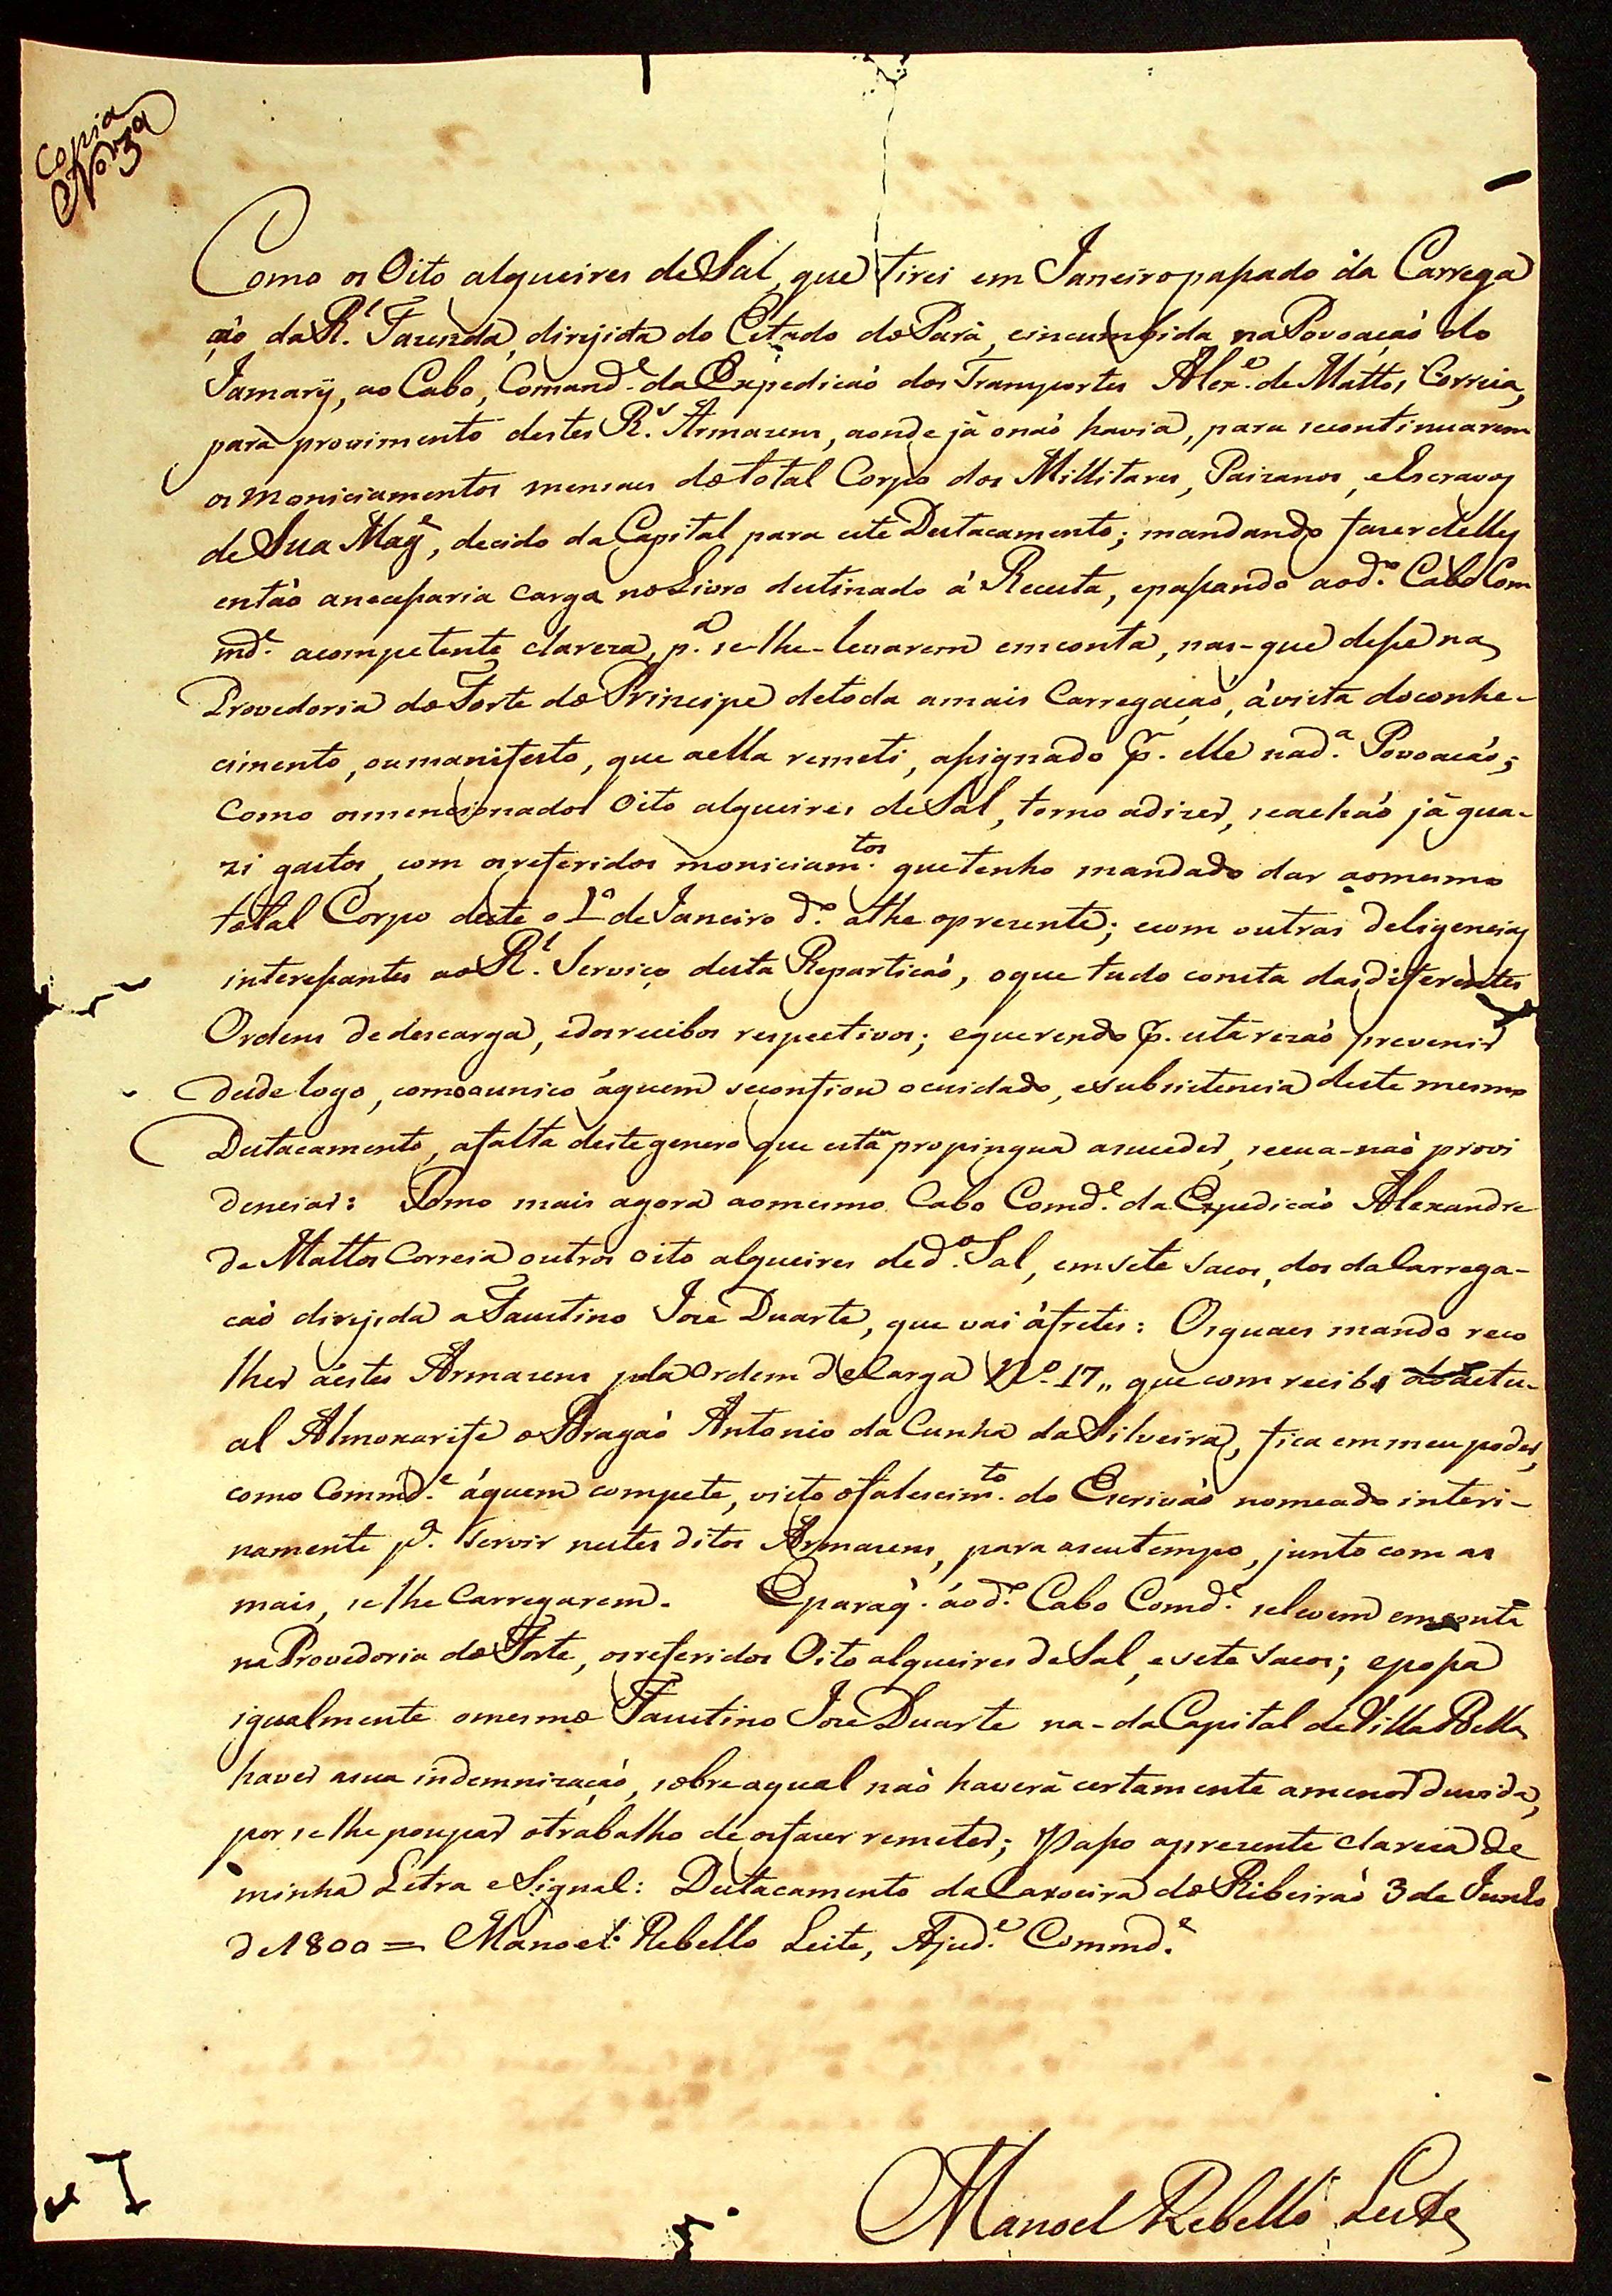 Copia
N.o 3.o
Como os Oito alqueires de Sal, que tirei em Janeiro passado da Carrega
ção da R.l Fazenda, dirijida do Estado do Pará, eincumbida na Povoação do
Jamarý, ao Cabo, Comand.e da Expedição dos Transportes Alex.e de Mattos Correia,
para provimento destes R.s Armazens, aonde já onáo havia, para secontinuarem
os moniciamentos mensaes do total Corpo dos Millitares, Paizanos, eEscravos
de Sua Mag.e, decido da Capital para este Destacamento; mandando fazer delles
então anecessaria carga no Livro destinado á Receita, epassando aod.o Cabo Com
md.e acompetente clareza, p.a se-lhe-levarem emconta, nas-que desse na
Provedoria do Forte do Principe detoda amais Carregação, ávista doconhe-
cimento, oumanifesto, que aella remeti, assignado p.r elle nad.a Povoação;
Como osmencionados Oito alqueires de Sal, torno adizer, seachão já qua-
zi gastos, com osreferidos moniciam.tos quetenho mandado dar aomesmo
total Corpo deste o 1.o de Janeiro d.o athe opresente; ecom outras deligencias
interessantes ao R.l Serviço desta Repartição, oque tudo consta dasdiferentes
Ordens de descarga, edosrecibos respectivos; equerendo p.r esta rezáo prevenir
desde logo, comoounico áquem seconfiou ocuidado, esubsistencia deste mesmo
Destacamento, afalta destegenero que está propinqua asuceder, seeua-náo provi
denciar: Tomo mais agora aomesmo Cabo Comd.e da Expedição Alexandre
de Mattos Correia outros oito alqueires ded.o Sal, emsete sacos, dos daCarrega-
cáo dirijida a Faustino Joze Duarte, que vai áfretes: Osquaes mando reco
lher áestes Armazens pela Ordem deCarga N.o 17,, que com recibo do actu-
al Almoxarife o Dragáo Antonio da Cunha da Silveira, fica emmeu poder,
como Commd.e áquem compete, visto ofalescim.to do Escriváo nomeado interi-
namente p.a servir nestes ditos Armazens, para aseutempo, junto com as
mais, selhe Carregarem. Eparaq. áod.o Cabo Comd.e selevem emconta
na Provedoria do Forte, osreferidos Oito alqueires de Sal, e sete sacos; epossa
igualmente omesmo Faustino Joze Duarte na-da Capital de Villa Bella
haver asua indemnizaçáo, sobreaqual náo haverá certamente amenor duvida,
por selhe poupar otrabalho de osfazer remeter; Passo apresente clareza de
minha Letra e Signal: Destacamento da Caxoeira do Ribeiráo 3 de Junho
de 1800 = Manoel Rebello Leite, Ajud.e Commd.e
Manoel Rebello Leite